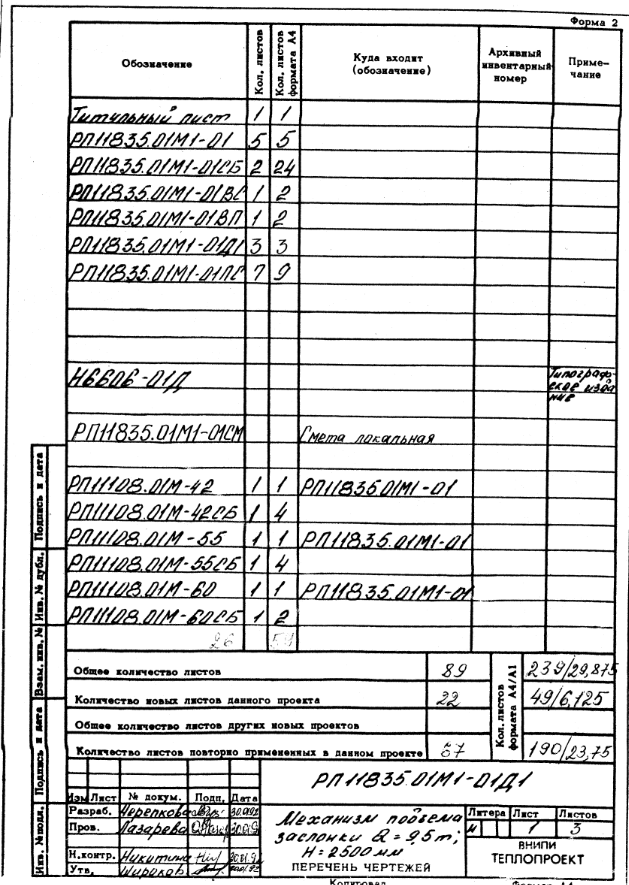 Форма 2
Обозначение Кол. листов Кол. листов формата А4 Куда входит (обозначение) Архивный инвентарный номер Примечание
Титульный лист 1 1
РП11835.01М1-01 5 5
РП11835.01М1-01СБ 2 24
РП11835.01М1-01ВС 1 2
РП11835.01М1-01ВП 1 2
РП11835.01М1-01Д1 3 3
РП11835.01М1-01ПС 7 9
Н6606-01Д Типографское издание
РП11835.01М1-01СМ Смета локальная
РП11108.01М-42 1 1 РП11835.01М1-01
РП11108.01М-42СБ 1 4
РП11108.01М-55 1 1 РП11835.01М1-01
РП11108.01М-55СБ 1 4
РП11108.01М-60 1 1 РП11835.01М1-01
РП11108.01М-60СБ 1 2
26
Общее количество листов 89 Кол. листов формата А4/А1 239/29,875
Количество новых листов данного проекта 22 49/6,125
Общее количество листов других новых проектов
Количество листов повторно примененных в данном проекте 67 190/23,75
РП11835.01М1-01Д1
Изм Лист № докум. Подп. Дата
Разраб. Черепкова
Пров. Лазарева
Н.контр. Никитина
Утв. Широков
Механизм подъема
заслонки Q = 95т;
Н = 2500 мм
ПЕРЕЧЕНЬ ЧЕРТЕЖЕЙ
Литера Лист Листов
И 1 3
ВНИПИ
ТЕПЛОПРОЕКТ
Инв. № подл. Подпись и дата Взам. инв. № Инв. № дубл. Подпись и дата
Копировал Формат А4